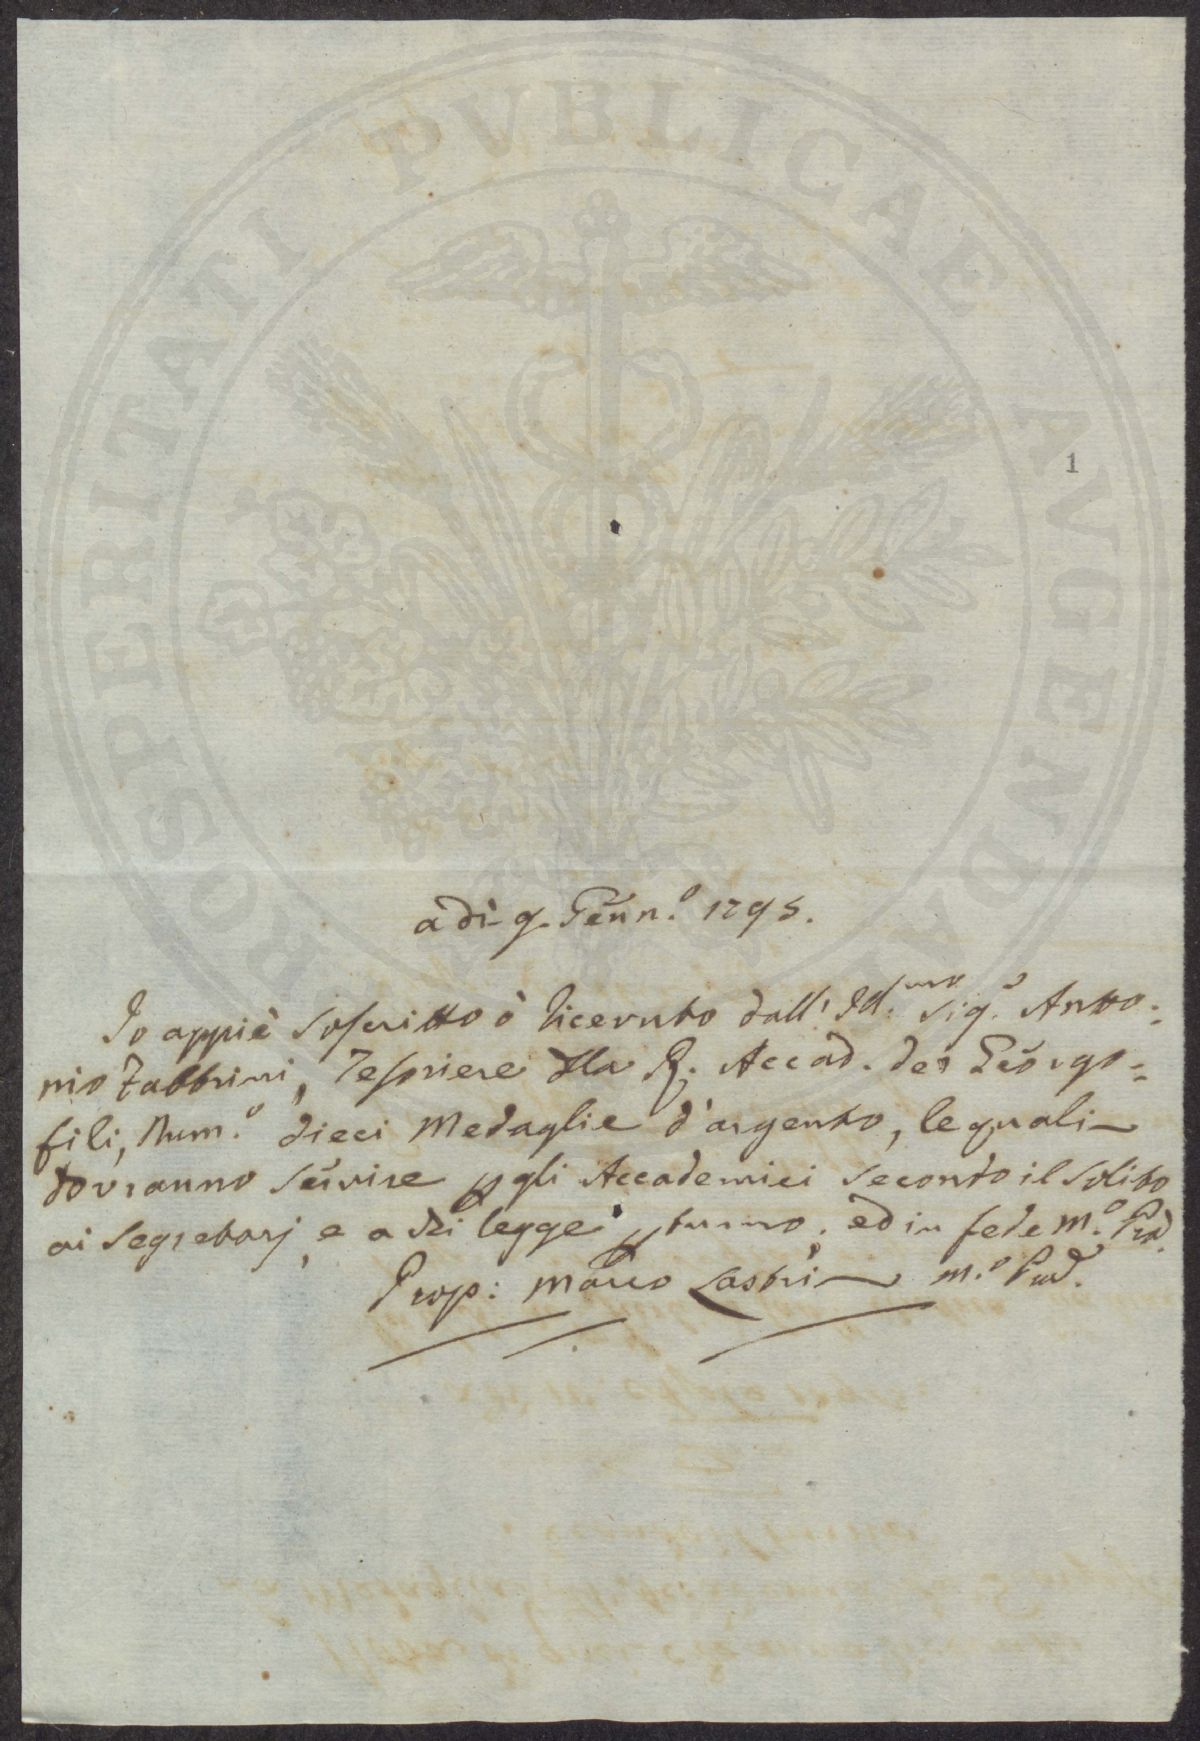 PROSPERITATI PUBLICAE AUGENDAE
1
adì 9. Genn.º 1795.
Io appiè soscritto ò ricevuto dall' Ill.mo Sig.e Anto=
nio Fabbrini, Tesoriere dlla R. Accad. dei Georgo=
fili, Num.º dieci Medaglie d'argento, le quali
dovranno servire p gli Accademici secondo il solito
ai Segretarj, e a chi legge p turno. ed in fede M.º Pad.
Prop: Marco Lastri M.º Pad.